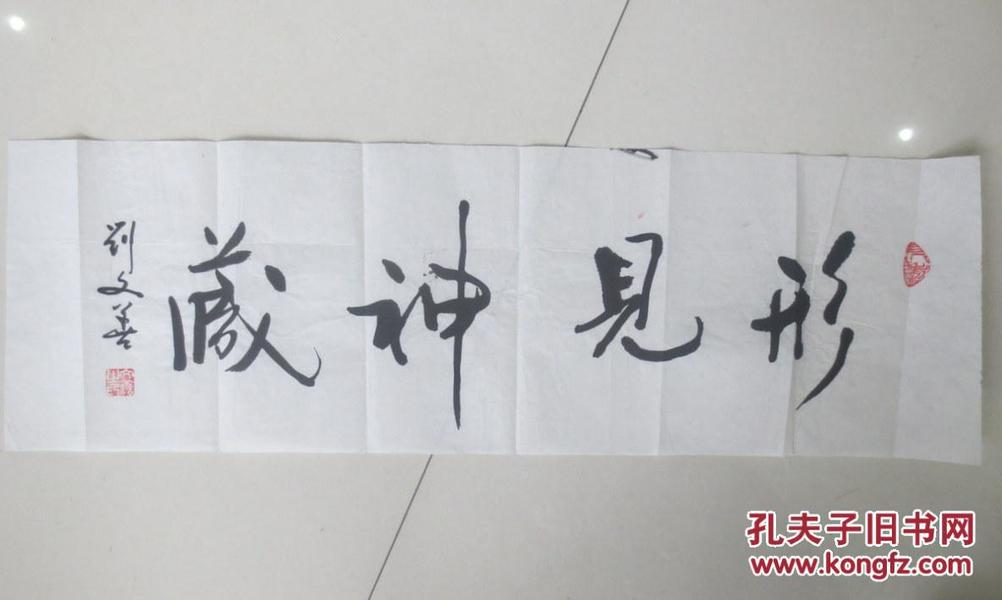 形見神藏
劉文善
孔夫子旧书网
www.kongfz.com